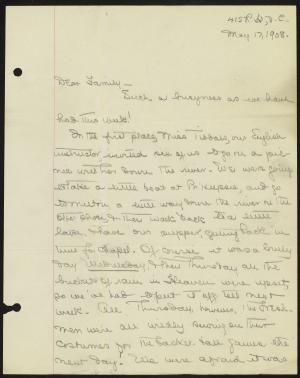 415 R. St, V. C.
May 17, 1908.
Dear Family—
Such a busyness as we have
had this week!
In the first place, Miss Tisdale, our English
instructor, invited six of us to go on a pic-
nic with her down the river. We were going
to take a little boat at Po'keepsie, and go
to a little way down the river on the
other shore, & then walk back to a little
have our supper, getting back in
time for chapel. Of course it was a lovely
day Wednesday, & then Thursday all the
buckets of rain in Heaven were upset,
so we had to put it off till next
week. All Thursday, however, the Fresh-
men were all wildly sewing on their
costumes for the basket ball games the
next day. We were afraid it was